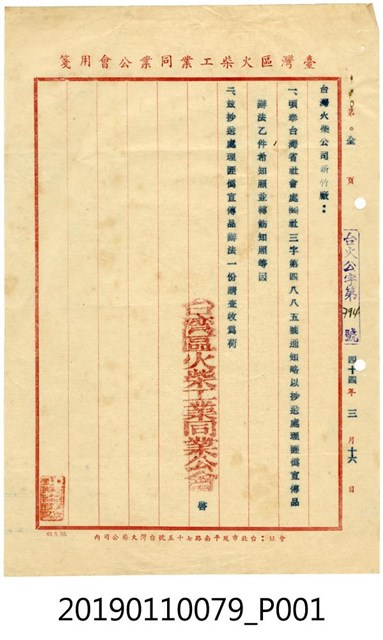 臺灣區火柴工業同業公會用箋
第 全 頁
台火公字第794號 四十四年 三 月 十六 日
台灣火柴公司新竹廠：
一、頃准台灣省社會處社三字第四八八五號通知略以抄送處理匪偽宣傳品
辦法乙件希知照並轉飭知照等因
二、茲抄送處理匪偽宣傳品辦法一份請查收為荷
台灣區火柴工業同業公會 啓
會址：台北市延平南路七十五號台灣火柴公司內
20190110079_P001